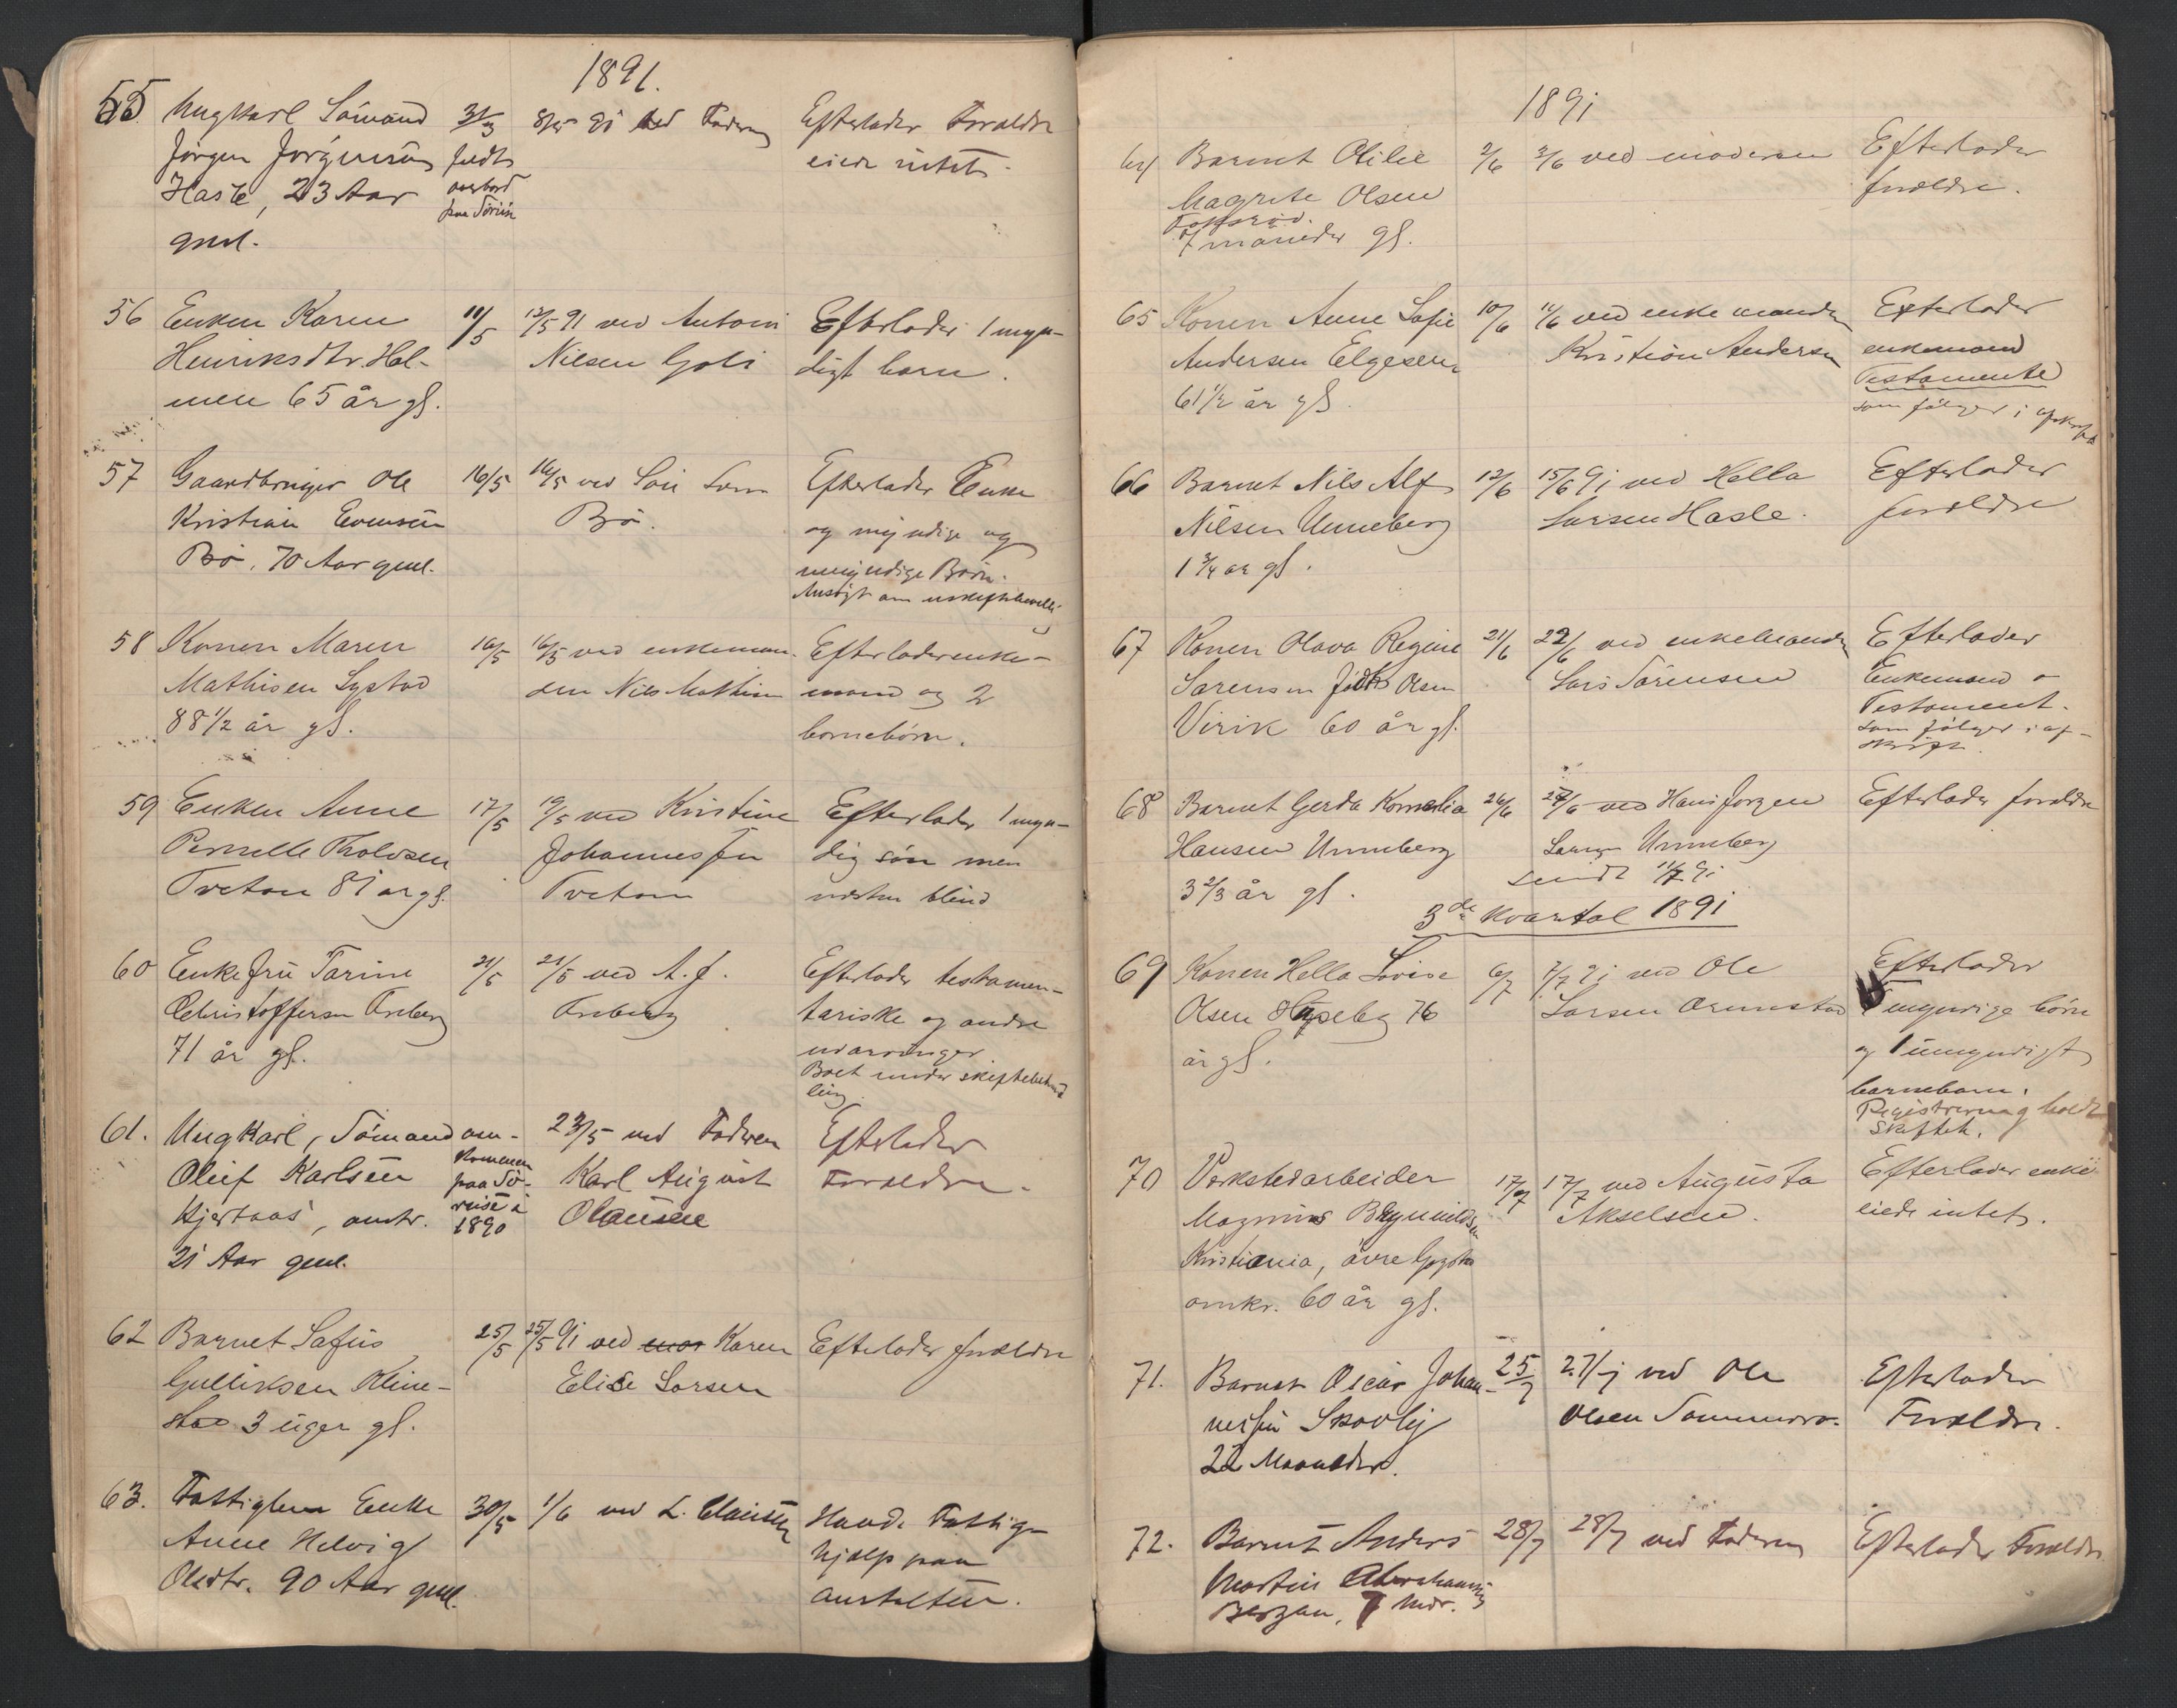 1891.
55 Ungkarl Sømand 31/3 8/5 91 ved Faderen Efterlader Forældre
Jørgen Jørgensen faldt eiede intet.
Hasle, 23 Aar overbord
gml. paa Søreise
56 Enken Karen 11/5 12/5 91 ved Anton Efterlader 1 myn-
Henriksdtr. Hol- Nilsen Goli digt barn.
men 65 år gl.
57 Gaardbruger Ole 16/5 16/5 ved Søn Efterlader Enke
Kristian Evensen Bø. og myndige og
Bø, 70 Aar gml. umyndige Børn.
Ansøgt om uskiftebevilli
58 Konen Maren 16/5 16/5 ved enkeman- Efterlader enke-
Mathisen Lystad den Nils Mathisen mand og 2
88 1/2 år gl. børnebørn.
59 Enken Anne 17/5 19/5 ved Kristine Efterlader 1 myn-
Pernelle Tholvsen Johannesen dig søn men
Tveten 81 år gl. Tveten næsten blind
60 Enkefru Tarine 21/5 21/5 ved A. J. Efterlader testamen-
Christoffersen Freberg Freberg tariske og andre
71 år gl. udarvinger
Boet under skiftebehand
ling.
61. Ungkarl, Sømand om- 23/5 ved Faderen Efterlader
Oluf Karlsen kommen Karl August Forældre.
Kjertaas, omtr. paa Sø- Olausen
21 Aar gml. reise i
1890
62 Barnet Sofus 25/5 25/5 91 ved mor Karen Efterlader forældre
Gulliksen Kline- Elise Larsen
stad 3 uger gl.
63. Fattiglem Enke 30/5 1/6 ved L. Clausen Havde Fattig-
Anne Helvig hjælp paa
Olsdtr. 90 Aar gml. anstalten.
1891
64 Barnet Olilie 2/6 3/6 ved moderen Efterlader
Magrete Olsen forældre.
Fokserød.
7 måneder gl.
65 Konen Anne Sofie 10/6 11/6 ved enkemanden Efterlader
Andersen Elgesen Kristian Andersen enkemand
61 1/2 år gl. Testamente
som følger i afskrift
66 Barnet Nils Alf 12/6 15/6 91 ved Hella Efterlader
Nilsen Unneberg Larsen Hasle. forældre
1 3/4 år gl.
67 Konen Olava Regine 21/6 22/6 ved enkemanden Efterlader
Sørensen født Olsen Lars Sørensen Enkemand
Virik 60 år gl. Testament.
som følger i af-
skrift.
68 Barnet Gerda Kornelia 26/6 27/6 ved Hans Jørgen Efterlader forældre
Hansen Unneberg Larsen Unneberg
3 2/3 år gl. sendt 11/7 91
3de kvartal 1891
69 Konen Hella Lovise 6/7 7/7 91 ved Ole Efterlader
Olsen Haseby 76 Larsen Ormestad myndige børn
år gl. og 1 umyndigt
barnebarn.
Registrering holdt
Skifteb.
70 Verkstedarbeider 17/7 17/7 ved Augusta Efterlader enke
Magnus Brynildsen Akselsen. eiede intet.
Kristiania, øvre
omkr. 60 år gl.
71. Barnet Oscar Johan- 25/7 27/7 ved Ole Efterlader
nesen Skovly Olsen Sommerro. Forældre.
22 Maaneder.
72. Barnet Anders 28/7 28/7 ved Faderen Efterlader Forældre
Martin Abrahamsen
Bergan, 7 Mdr.